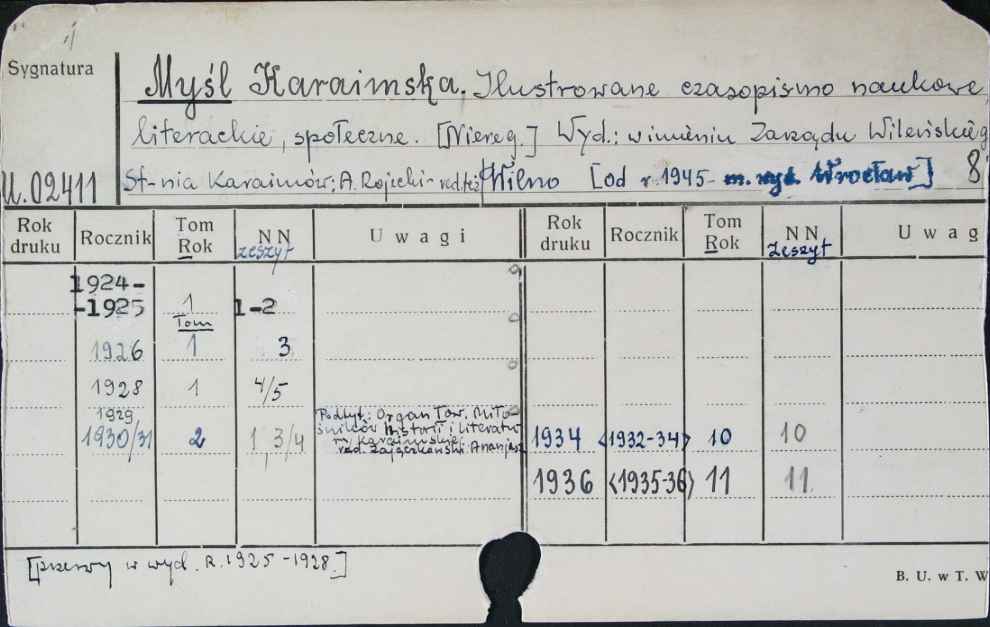 Sygnatura
Myśl Karaimska. Ilustrowane czasopismo naukowe,
literackie, społeczne. [Niereg.] Wyd.: w imieniu Zarządu Wileńskieg
U.02411 St-nia Karaimów: A. Rojecki- red. też Wilno [od r. 1945- m. wyd. Wrocław] 8
Rok druku Rocznik Tom Rok NN zeszyt Uwagi Rok druku Rocznik Tom Rok NN Zeszyt Uwag
1924-
-1925 1 1-2
Tom
1926 1 3
1928 1 4/5
1929
1930/31 2 1, 3/4 Podtyt.: Organ Tow. Miło-
śników Historii i Literatu-
ry Karaimskiej
red. Zajączkowski Ananjasz
1934 <1932-34> 10 10
1936 <1935-36> 11 11
[przerwy w wyd. R. 1925-1928.]
B. U. w T. W